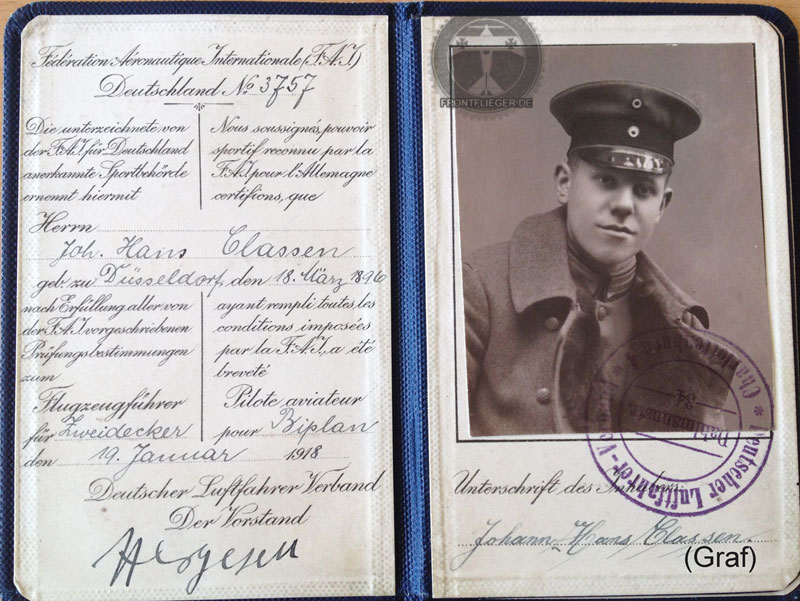 Fédération Aéronautique Internationale (F.A.I.)
Deutschland No 3757
Die unterzeichnete von
der F.A.I. für Deutschland
anerkannte Sportbehörde
ernennt hiermit
Nous soussignés, pouvoir
sportif reconnu par la
F.A.I. pour l'Allemagne
certifions, que
Herrn
Joh. Hans Classen
geb. zu Düsseldorf, den 18. März 1896
nach Erfüllung aller von
der F.A.I. vorgeschriebenen
Prüfungsbestimmungen
zum
Flugzeugführer
für Zweidecker
ayant rempli toutes les
conditions imposées
par la F.A.I., a été
breveté
Pilote aviateur
pour Biplan
den 19. Januar 1918
Deutscher Luftfahrer Verband
Der Vorstand
FRONTFLIEGER.DE
Deutscher Luftfahrer-V
34
Unterschrift des Inhabers:
Johann-Hans Classen.
(Graf)